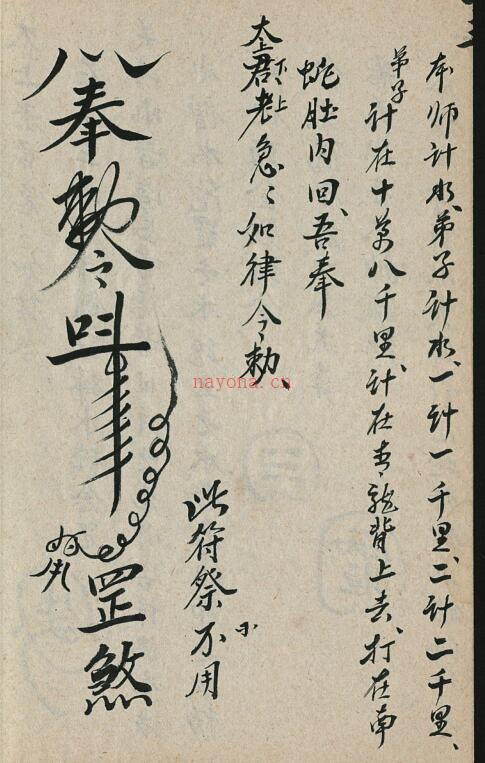 本师计水、弟子计水、一计一千里、二计二千里、
弟子计在十萬八千里、计在青龍背上去、打在南
蛇肚内回、吾奉
太上老君急〻如律令、敕、
此符祭不用
奉敕令
罡煞
nayona.cn